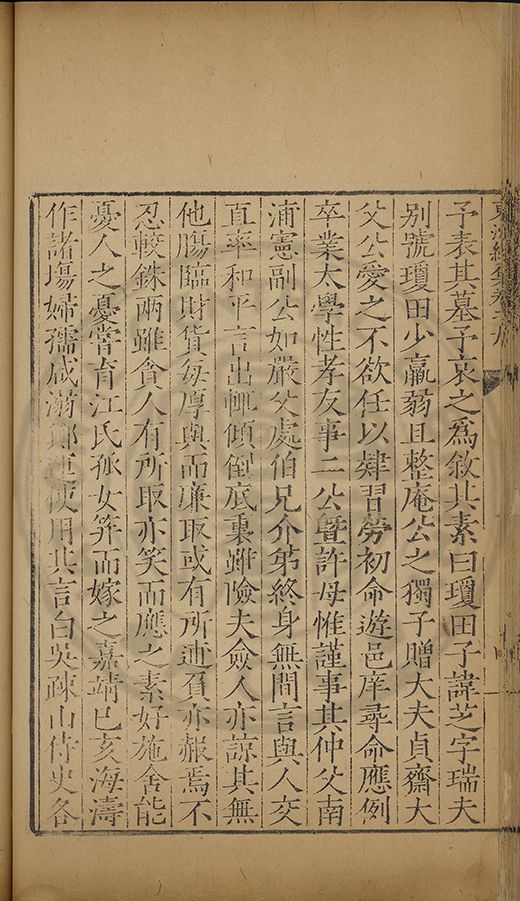 予表其墓予哀之為敘其素曰瓊田子諱芝字瑞夫
別號瓊田少羸弱且整庵公之獨子贈大夫貞齋大
父公愛之不欲任以肄習勞初命遊邑庠尋命應例
卒業太學性孝友事二公暨許母惟謹事其仲父南
浦憲副公如嚴父處伯兄介弟終身無間言與人交
直率和平言出輒傾倒底裏雖險夫僉人亦諒其無
他腸臨財貨每厚與而廉取或有所逋負亦赧焉不
忍較銖兩雖貪人有所取亦笑而應之素好施舍能
憂人之憂嘗育江氏孤女笄而嫁之嘉靖己亥海濤
作諸場婦孺咸溺鄭運使用其言白吳疎山侍史各